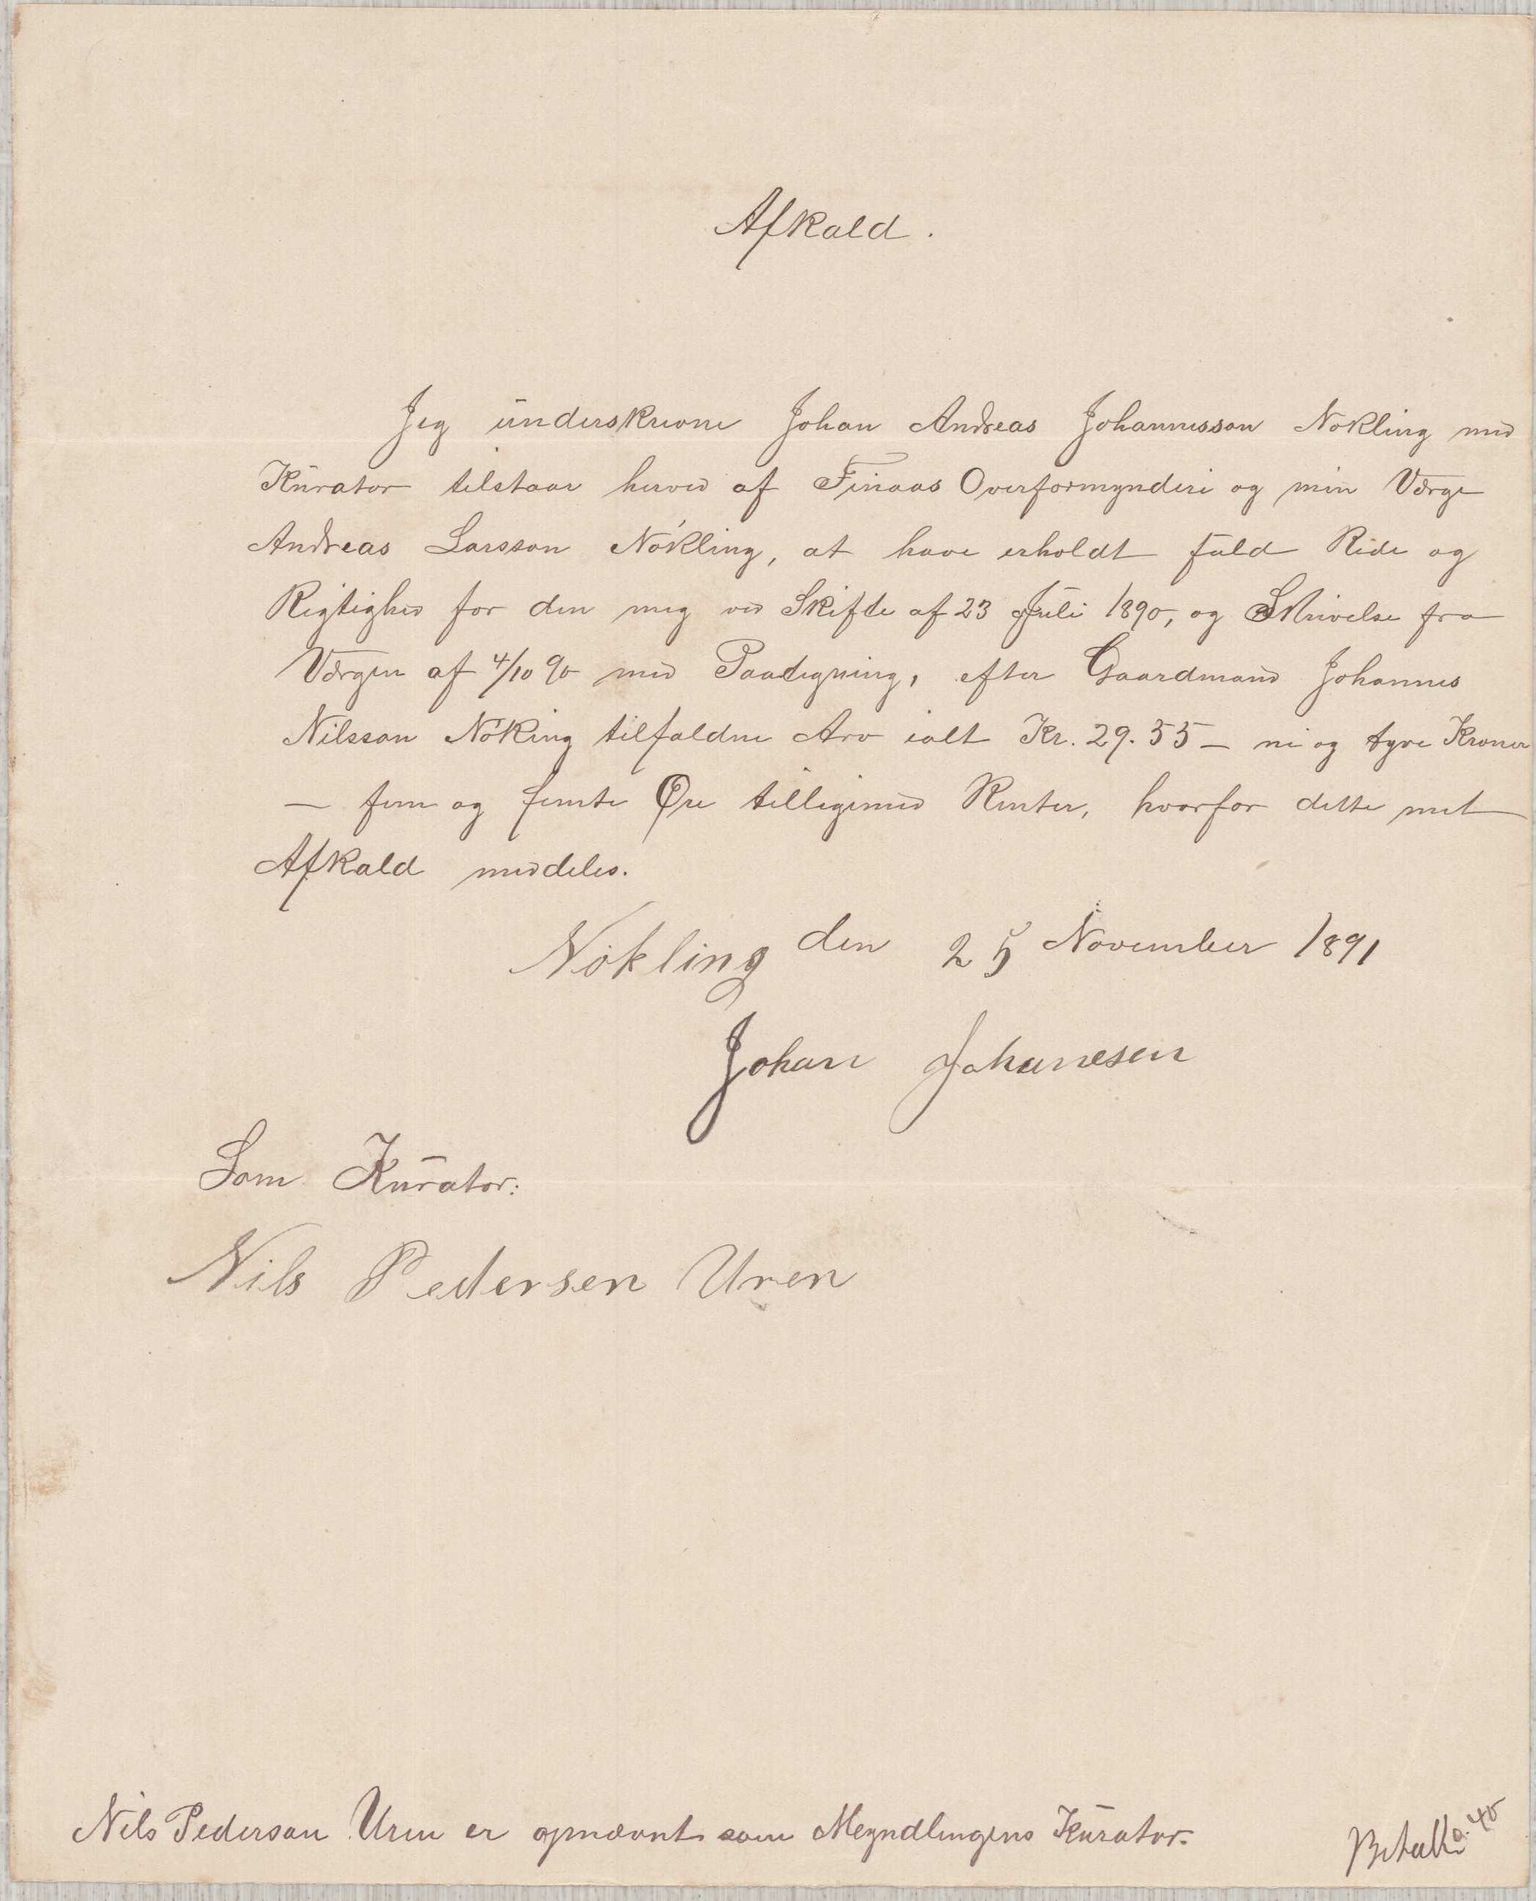 Afkald.
Jeg underskrevne Johan Andreas Johannesson Nökling med
Kurator tilstaar herved af Finaas Overformynderi og min Værge
Andreas Larsson Nökling, at have erholdt fuld Rede og
Rigtighed for den mig ved Skifte af 23 Juli 1890, og Skrivelse fra
Værgen af 4/10 90 med Paategning, efter Gaardmand Johannes
Nilsson Nöking tilfaldne Arv ialt Kr. 29.55 — ni og tyve Kroner
— fem og femti Øre tilligemed Renter, hvorfor dette mit
Afkald meddeles.
Nökling den 25 November 1891
Johan Johanesen
Som Kurator:
Nils Pedersen Uren
Nils Pederson Uren er opnævnt som Meyndlingens Kurator.
Betalt 0.40